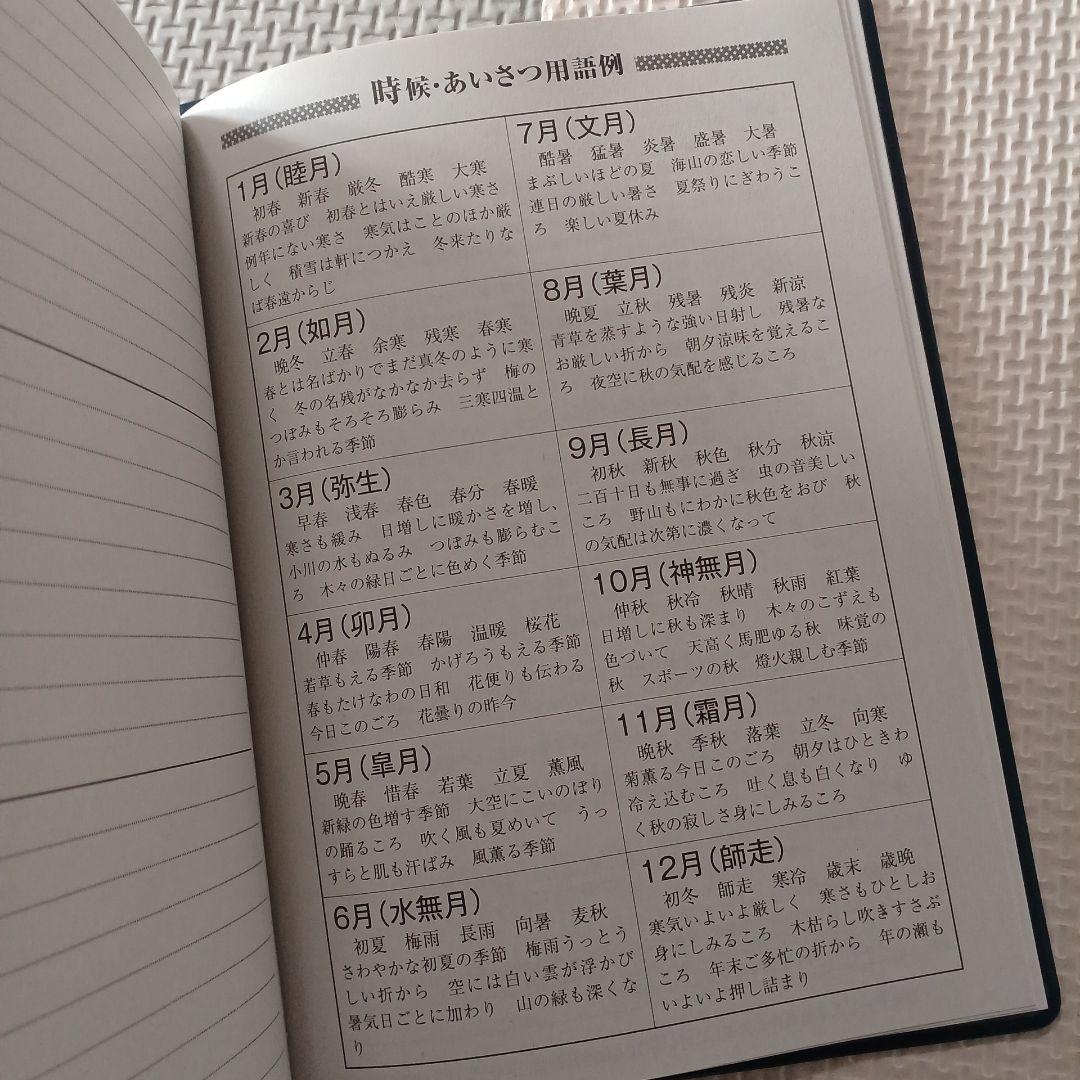 時候・あいさつ用語例
1月(睦月)
初春　新春　厳冬　酷寒　大寒
新春の喜び　初春とはいえ厳しい寒さ
例年にない寒さ　寒気はことのほか厳
しく　積雪は軒につかえ　冬来たりな
ば春遠からじ
2月(如月)
晩冬　立春　余寒　残寒　春寒
春とは名ばかりでまだ真冬のように寒
く　冬の名残がなかなか去らず　梅の
つぼみもそろそろ膨らみ　三寒四温と
か言われる季節
3月(弥生)
早春　浅春　春色　春分　春暖
寒さも緩み　日増しに暖かさを増し、
小川の水もぬるみ　つぼみも膨らむこ
ろ　木々の緑日ごとに色めく季節
4月(卯月)
仲春　陽春　春陽　温暖　桜花
若草もえる季節　かげろうもえる季節
春もたけなわの日和　花便りも伝わる
今日このごろ　花曇りの昨今
5月(皐月)
晩春　惜春　若葉　立夏　薫風
新緑の色増す季節　大空にこいのぼり
の踊るころ　吹く風も夏めいて　うっ
すらと肌も汗ばみ　風薫る季節
6月(水無月)
初夏　梅雨　長雨　向暑　麦秋
さわやかな初夏の季節　梅雨うっとう
しい折から　空には白い雲が浮かび
暑気日ごとに加わり　山の緑も深くな
り
7月(文月)
酷暑　猛暑　炎暑　盛暑　大暑
まぶしいほどの夏　海山の恋しい季節
連日の厳しい暑さ　夏祭りにぎわうこ
ろ　楽しい夏休み
8月(葉月)
晩夏　立秋　残暑　残炎　新涼
青草を蒸すような強い日射し　残暑な
お厳しい折から　朝夕涼味を覚えるこ
ろ　夜空に秋の気配を感じるころ
9月(長月)
初秋　新秋　秋色　秋分　秋涼
二百十日も無事に過ぎ　虫の音美しい
ころ　野山もにわかに秋色をおび　秋
の気配は次第に濃くなって
10月(神無月)
仲秋　秋冷　秋晴　秋雨　紅葉
日増しに秋も深まり　木々のこずえも
色づいて　天高く馬肥ゆる秋　味覚の
秋　スポーツの秋　燈火親しむ季節
11月(霜月)
晩秋　季秋　落葉　立冬　向寒
菊薫る今日このごろ　朝夕はひときわ
冷え込むころ　吐く息も白くなり　ゆ
く秋の寂しさ身にしみるころ
12月(師走)
初冬　師走　寒冷　歳末　歳晩
寒気いよいよ厳しく　寒さもひとしお
身にしみるころ　木枯らし吹きすさぶ
ころ　年末ご多忙の折から　年の瀬も
いよいよ押し詰まり